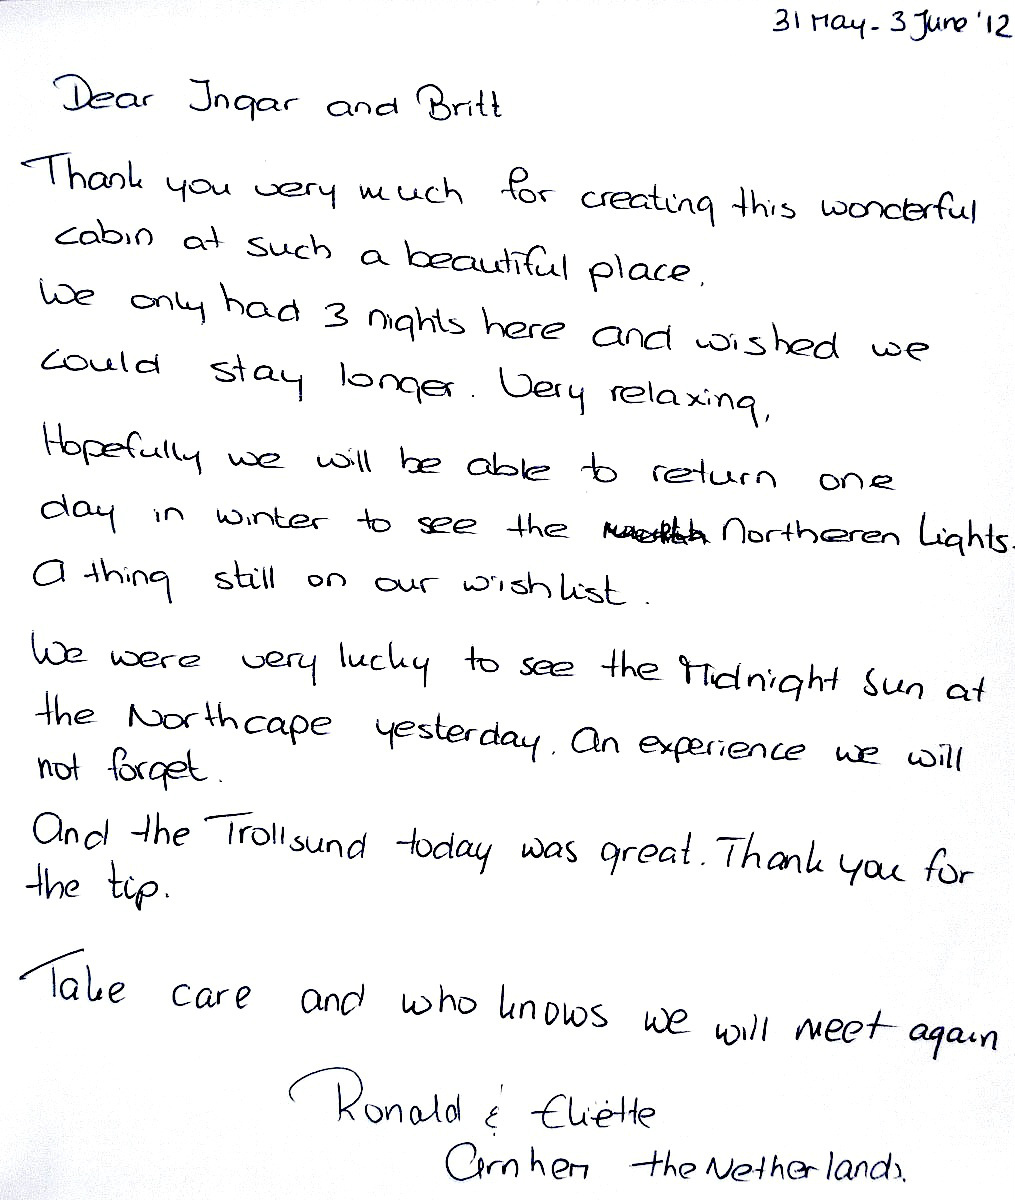 31 May - 3 June '12
Dear Ingar and Britt
Thank you very much for creating this wonderful
cabin at such a beautiful place.
We only had 3 nights here and wished we
could stay longer. Very relaxing,
Hopefully we will be able to return one
day in winter to see the Northeren Lights.
A thing still on our wishlist.
We were very lucky to see the Midnight Sun at
the Northcape yesterday. An experience we will
not forget.
And the Trollsund today was great. Thank you for
the tip.
Take care and who knows we will meet again
Ronald & Eliëtte
Arnhem the Netherlands.